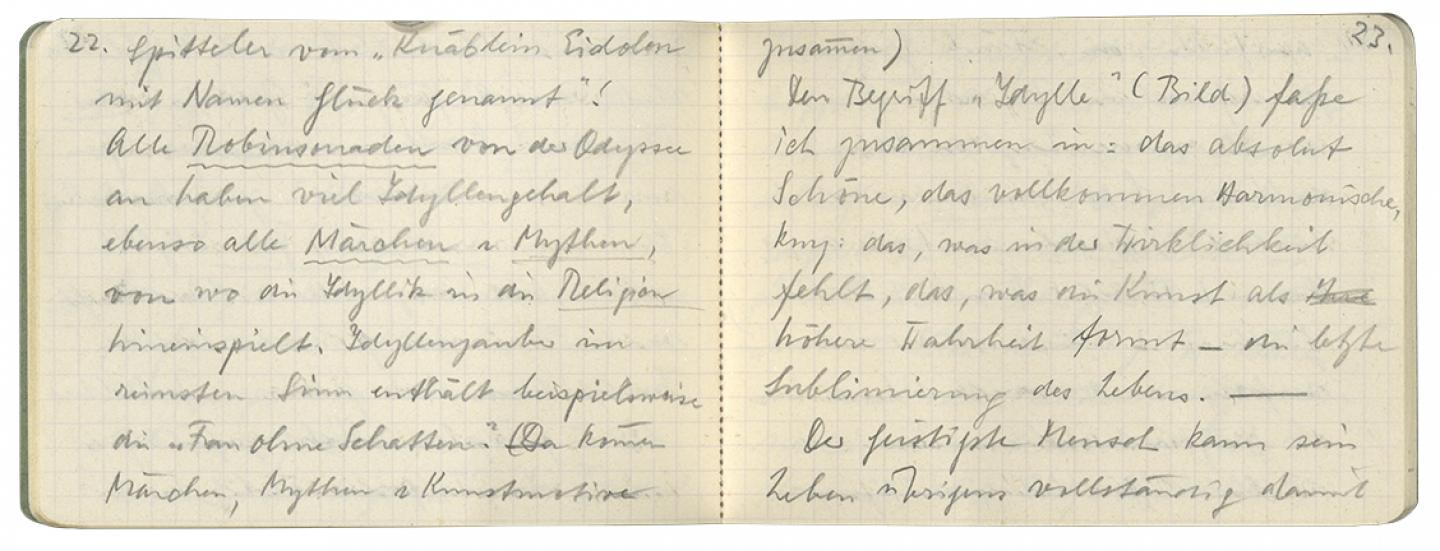 22.
Spitteler vom „Knäblein Eidolon
mit Namen Glück genannt"!
Alle Robinsonaden von der Odyssee
an haben viel Idyllengehalt,
ebenso alle Märchen u Mythen,
von wo die Idyllik in die Religion
hineinspielt. Idyllenzauber im
reinsten Sinn enthält beispielsweise
die „Frau ohne Schatten". (Da kom̅en
Märchen, Mythen u Kunstmotive
23.
zusam̅en)
Den Begriff „Idylle" (Bild) faße
ich zusammen in: das absolut
Schöne, das vollkommen Harmonische,
kurz: das, was in der Wirklichkeit
fehlt, das, was die Kunst als
höhere Wahrheit formt – die letzte
Sublimierung des Lebens. —
Der geistigste Mensch kann sein
Leben übrigens vollständig damit